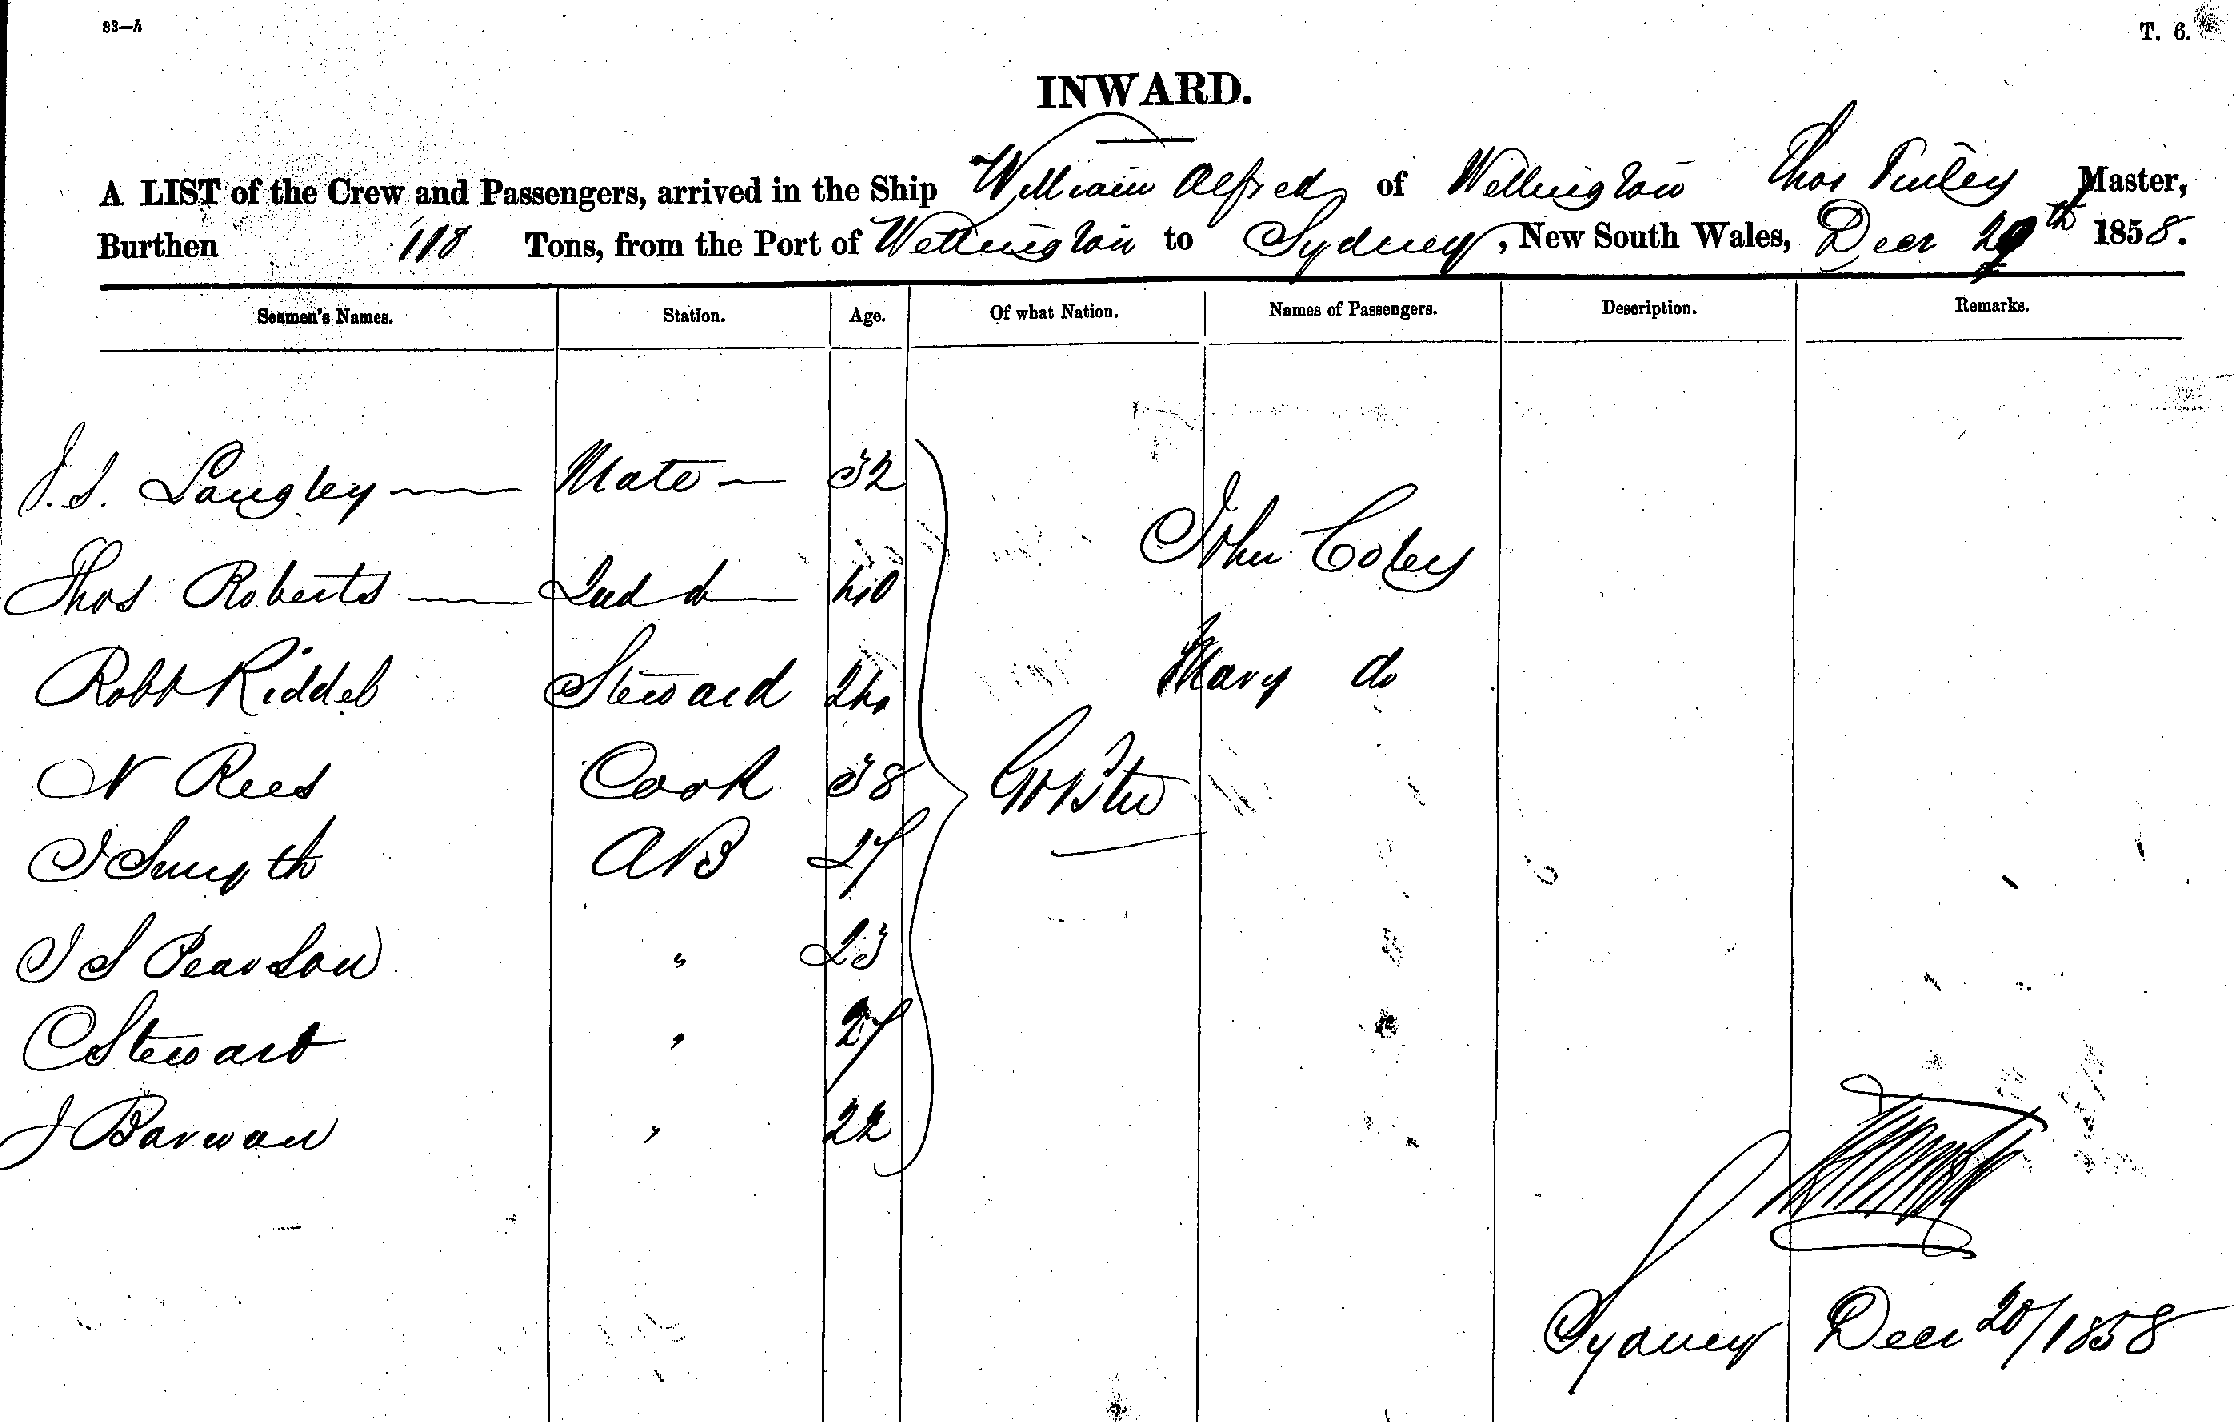 83—A T. 6.
INWARD.
A LIST of the Crew and Passengers, arrived in the Ship William Alfred of Wellington Thos Tinley Master,
Burthen 118 Tons, from the Port of Wellington to Sydney, New South Wales, Decr 20th 1858.
Seamen's Names. Station. Age. Of what Nation. Names of Passengers. Description. Remarks.
J. S. Langley Mate 32
John Coley
Thos Roberts 2nd do 40
Mary do
Robt Riddel Steward 24
N Rees Cook 38 Gt Btn
J Smyth AB 27
J S Pearson " 23
C Stewart " 27
J Barwan " 22
Sydney Decr 20/1858